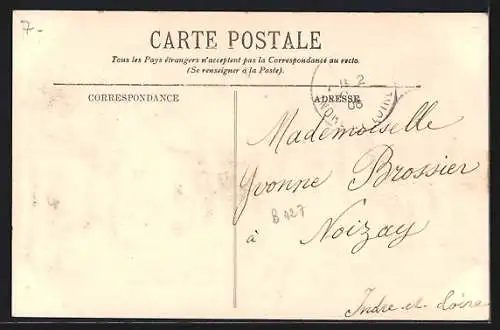 7-
CARTE POSTALE
Tous les Pays étrangers n'acceptent pas la Correspondance au recto.
(Se renseigner à la Poste).
CORRESPONDANCE
ADRESSE
Mademoiselle
Yvonne Brossier
B 127
à Noizay
Indre et Loire